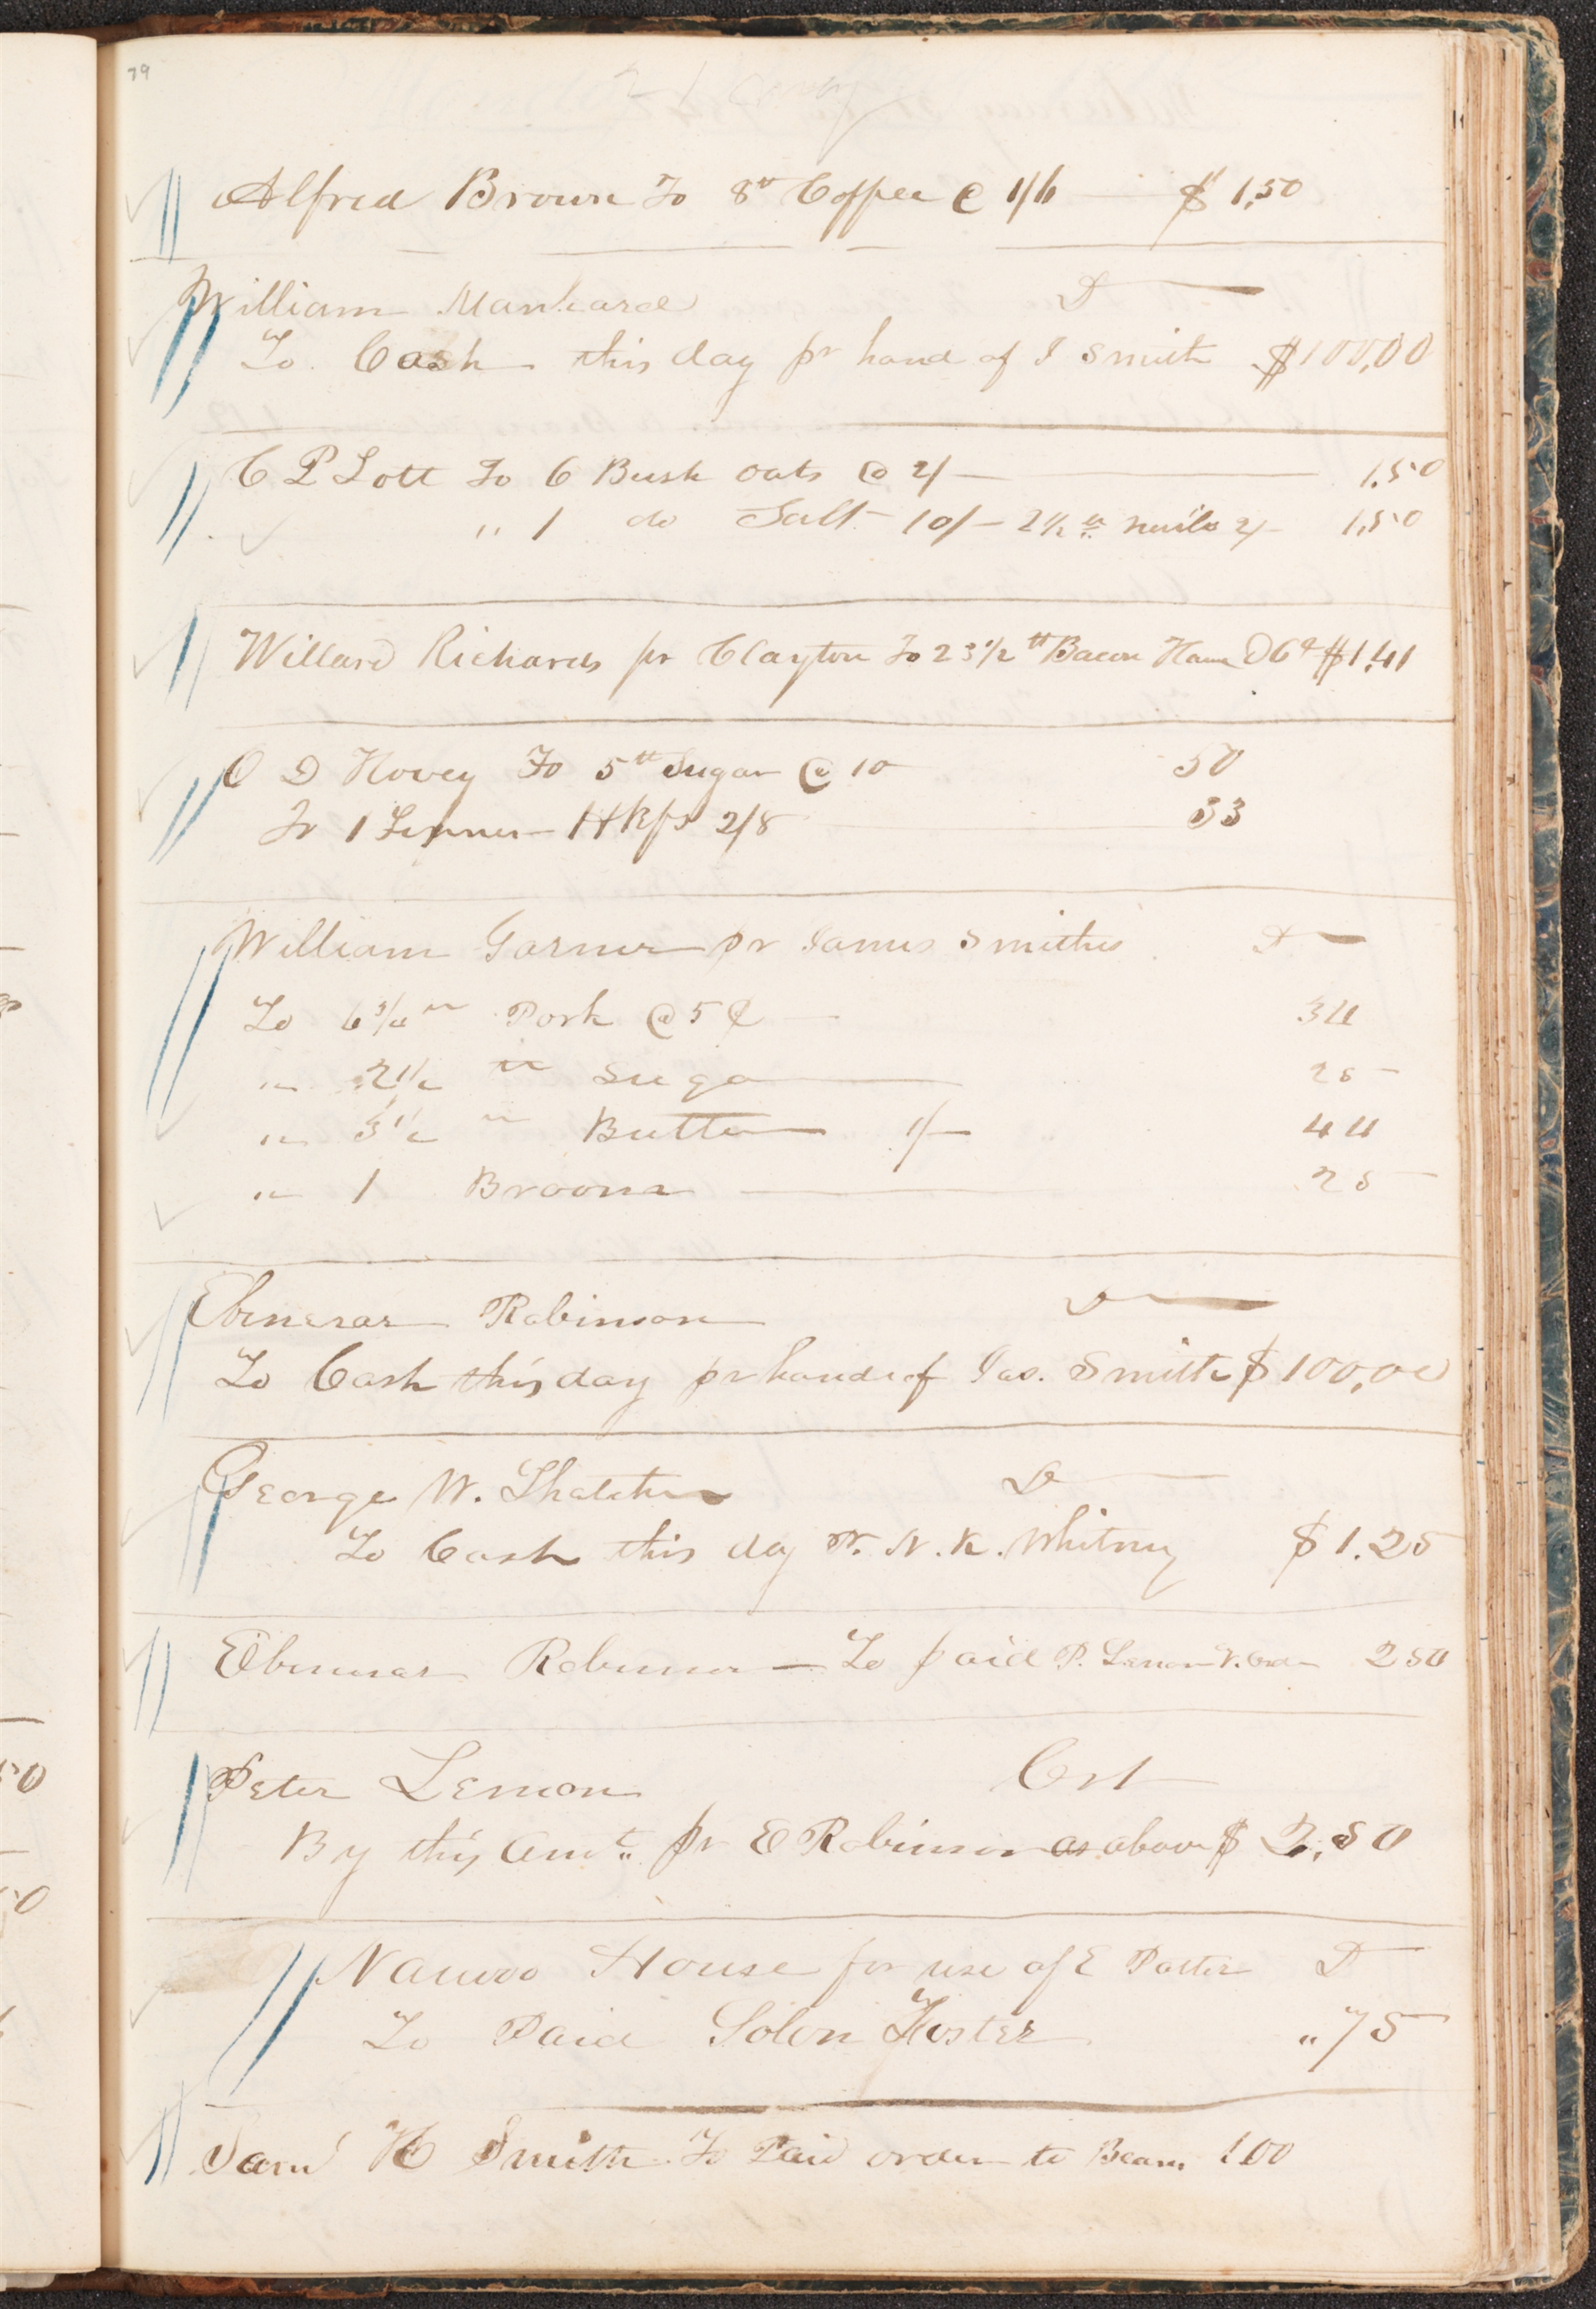 79
Alfred Brown To 8 tt Coffee @ 1/6 $ 1,50
William Manhard D
To Cash this day pr hand of J Smith $100,00
C P Lott To 6 Bush oats @ 2/ 1,50
" 1 do Salt 10/- 2 1/2 tt nails 2/- 1,50
Willard Richards pr Clayton To 23 1/2 tt Bacon Ham @ 6¢ $1,41
O D Hovey To 5 tt Sugar @ 10 50
To 1 Hkfs 2/8 33
William Garner pr James Smithies D
To 6 3/4 tt Pork @ 5 ¢ 34
" 2 1/2 tt Suga 25
" 3 1/2 " Butter 1/- 44
" 1 Broom 25
Ebenezar Robinson D
To Cash this day pr hands of Jas. Smith $100,00
George W. Thatcher D
To Cash this day pr. N. K. Whitney $ 1.25
Ebenezar Robinson To paid P. Lemon pr. Order 250
Peter Lemon Crt
By this Amt. pr E Robinson as above $ 2,50
Nauvoo House for use of E Potter D
To Paid Solon Foster "75
Saml H Smith To Paid order to Beam 100
50
50